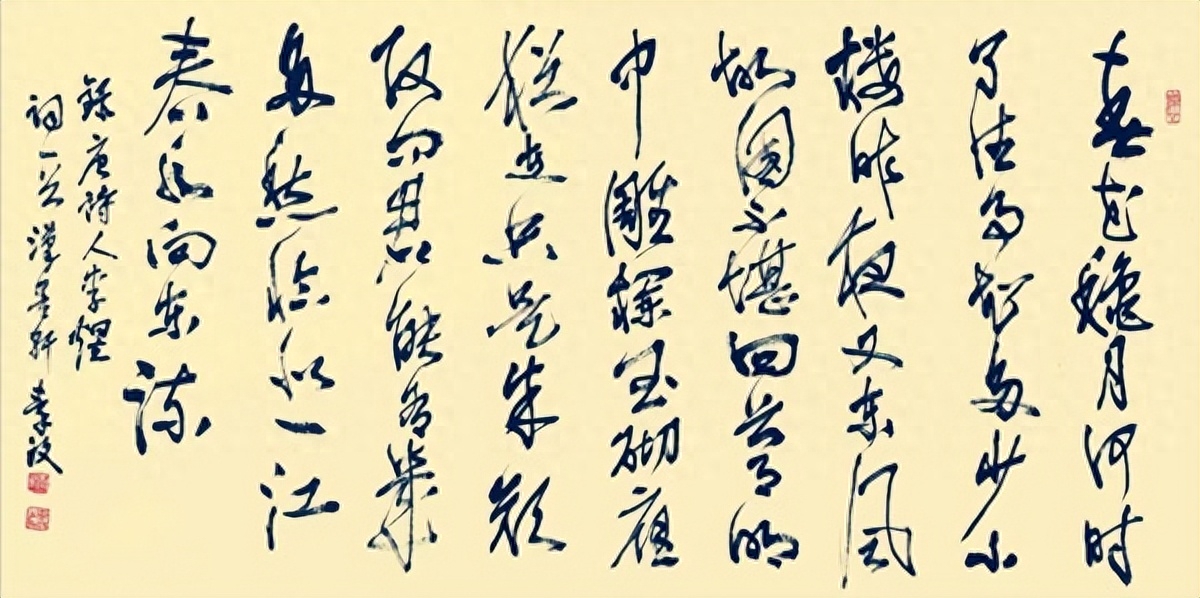 春花秋月何时
了往事知多少小
楼昨夜又东风
故国不堪回首月明
中雕栏玉砌应
犹在只是朱颜
改问君能有几
多愁恰似一江
春水向东流
录唐诗人李煜
词一首 汉墨轩 李